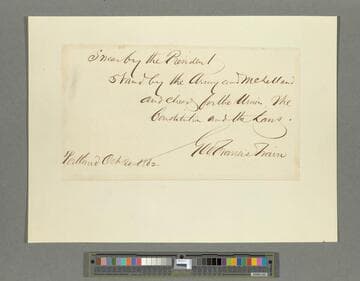 Swear by the President
stand by the Army and McClelland
and cheer for the Union the
Constitution and the Laws.
Geo Francis Train
Portland Oct 20 1862